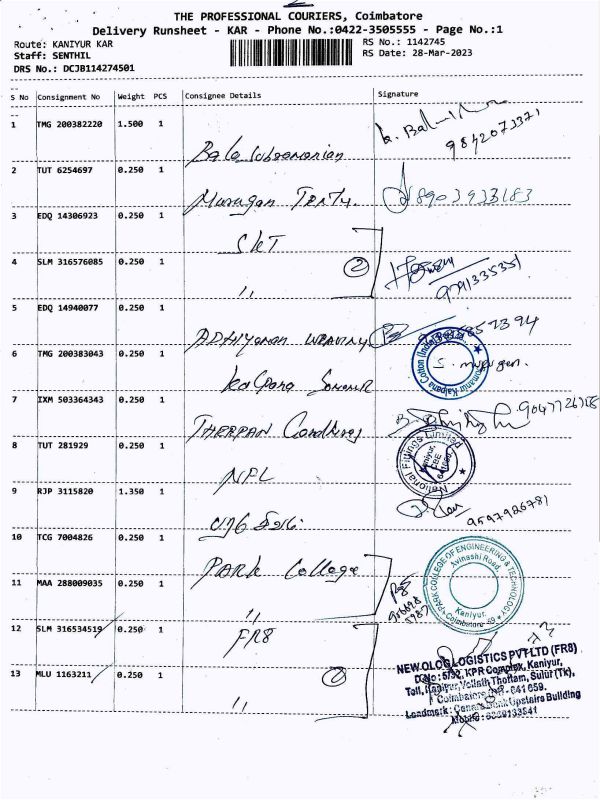 THE PROFESSIONAL COURIERS, Coimbatore
Delivery Runsheet - KAR - Phone No.:0422-3505555 - Page No.:1
Route: KANIYUR KAR
RS No.: 1142745
Staff: SENTHIL
RS Date: 28-Mar-2023
DRS No.: DCJB114274501
S No Consignment No Weight PCS Consignee Details Signature
1 TMG 200382220 1.500 1 Bala Subramanian
9842073371
2 TUT 6254697 0.250 1 Murugan Text. 8903933183
3 EDQ 14306923 0.250 1 SKT
4 SLM 316576085 0.250 1 ,, 2
9791335351
5 EDQ 14940077 0.250 1 ADHIYAMAN WEAVING
6 TMG 200383043 0.250 1 Kalpana Somanur S. Murugan.
Kalpana Cotton (India)
7 IXM 503364343 0.250 1
8 TUT 281929 0.250 1 NFL
National Fittings Limited
Kaniyur,
9 RJP 3115820 1.350 1
9597926781
10 TCG 7004826 0.250 1 PARK College
PARK COLLEGE OF ENGINEERING & TECHNOLOGY
Avinashi Road,
Kaniyur,
Coimbatore - 59
11 MAA 288009035 0.250 1 ,,
12 SLM 316534519 0.250 1 FR8
13 MLU 1163211 0.250 1 ,, 2
NEW OLOG LOGISTICS PVT LTD (FR8)
D.No : 5/92, KPR Complex, Kaniyur,
Thottam, Sulur (Tk),
Coimbatore - 641 659.
Landmark : Canara Bank Upstairs Building
Mobile :